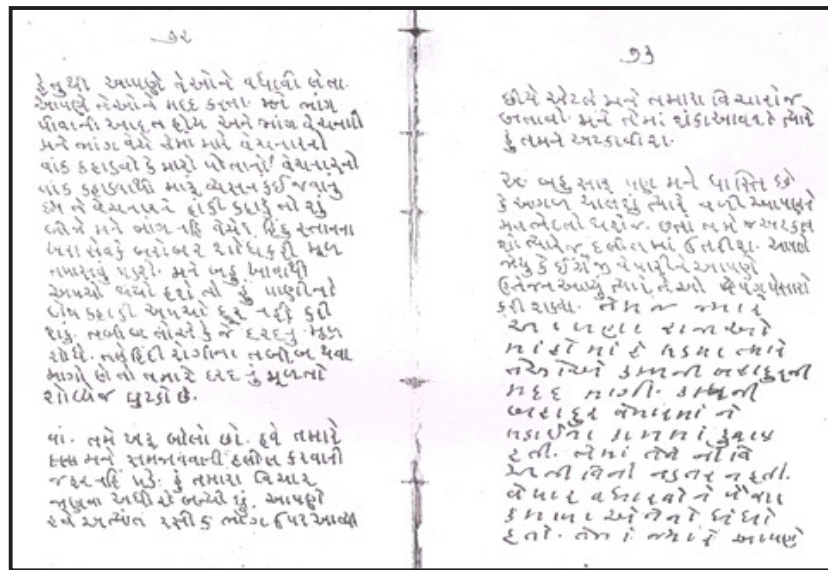 ૭૨
હેતુથી આપણે તેઓને વધાવી લેતા.
આપણે તેઓને મદદ કરતા. મને ભાંગ
પીવાની આદત હોય અને ભાંગ વેચનારો
મને ભાંગ વેચે તેમાં મારે વેચનારનો
વાંક કહાડવો કે મારો પોતાનો? વેચનારનો
વાંક કહાડવાથી મારૂં વ્યસન કંઈ જવાનું
છે? તે વેચનારને હાંકી કહાડું તો શું
બીજો મને ભાંગ નહિં વેચે? હિંદુસ્તાનના
ખરા સેવકે બરોબર શોધ કરી મૂળ
તપાસવું પડશે. મને બહુ ખાવાથી
અપચો થયો હશે તો હું પાણીનો
દોષ કહાડી અપચો દૂર નહીં કરી
શકું. તબીબ તો એ કે જે દરદનું મૂળ
શોધે. તમે હિંદી રોગીના તબીબ થવા
માગો છો તો તમારે દરદનું મૂળ તો
શોધ્યેજ છુટકો છે.
વાં. તમે ખરૂં બોલો છો. હવે તમારે
મને સમજાવવાની દલીલ કરવાની
જરૂર નહિં પડે. હું તમારા વિચાર
જાણવા અધીરો બન્યો છું. આપણે
હવે અત્યંત રસીક ભાગ ઉપર આવ્યા
૭૩
છીયે એટલે મને તમારા વિચારોજ
બતાવો. મને તેમાં શંકા આવશે ત્યારે
હું તમને અટકાવીશ.
અ. બહુ સારૂં પણ મને ધાસ્તિ છે
કે આગળ ચાલશું ત્યારે વળી આપણને
મતભેદ તો થશેજ. છતાં તમે જ અટકાવ
શો ત્યારેજ દલીલમાં ઉતરીશ. આપણે
જોયું કે ઈંગ્રેજી વેપારીને આપણે
ઉત્તેજન આપ્યું ત્યારે તેઓ પગ પેસારો
કરી શક્યા. તેમ જ જ્યારે
આપણા રાજાઓ
માંહો માંહે લડ્યા ત્યારે
તેઓએ કમ્પની બહાદુરની
મદદ માગી. કમ્પની
બહાદુર વેપારમાં ને
લડાઈના કામમાં કુશળ
હતી. તેમાં તેને નીતિ
અનીતિની નડતર ન હતી.
વેપાર વધારવો ને પૈસા
કમાવા એ તેનો ધંધો
હતો. તેમાં જ્યારે આપણે